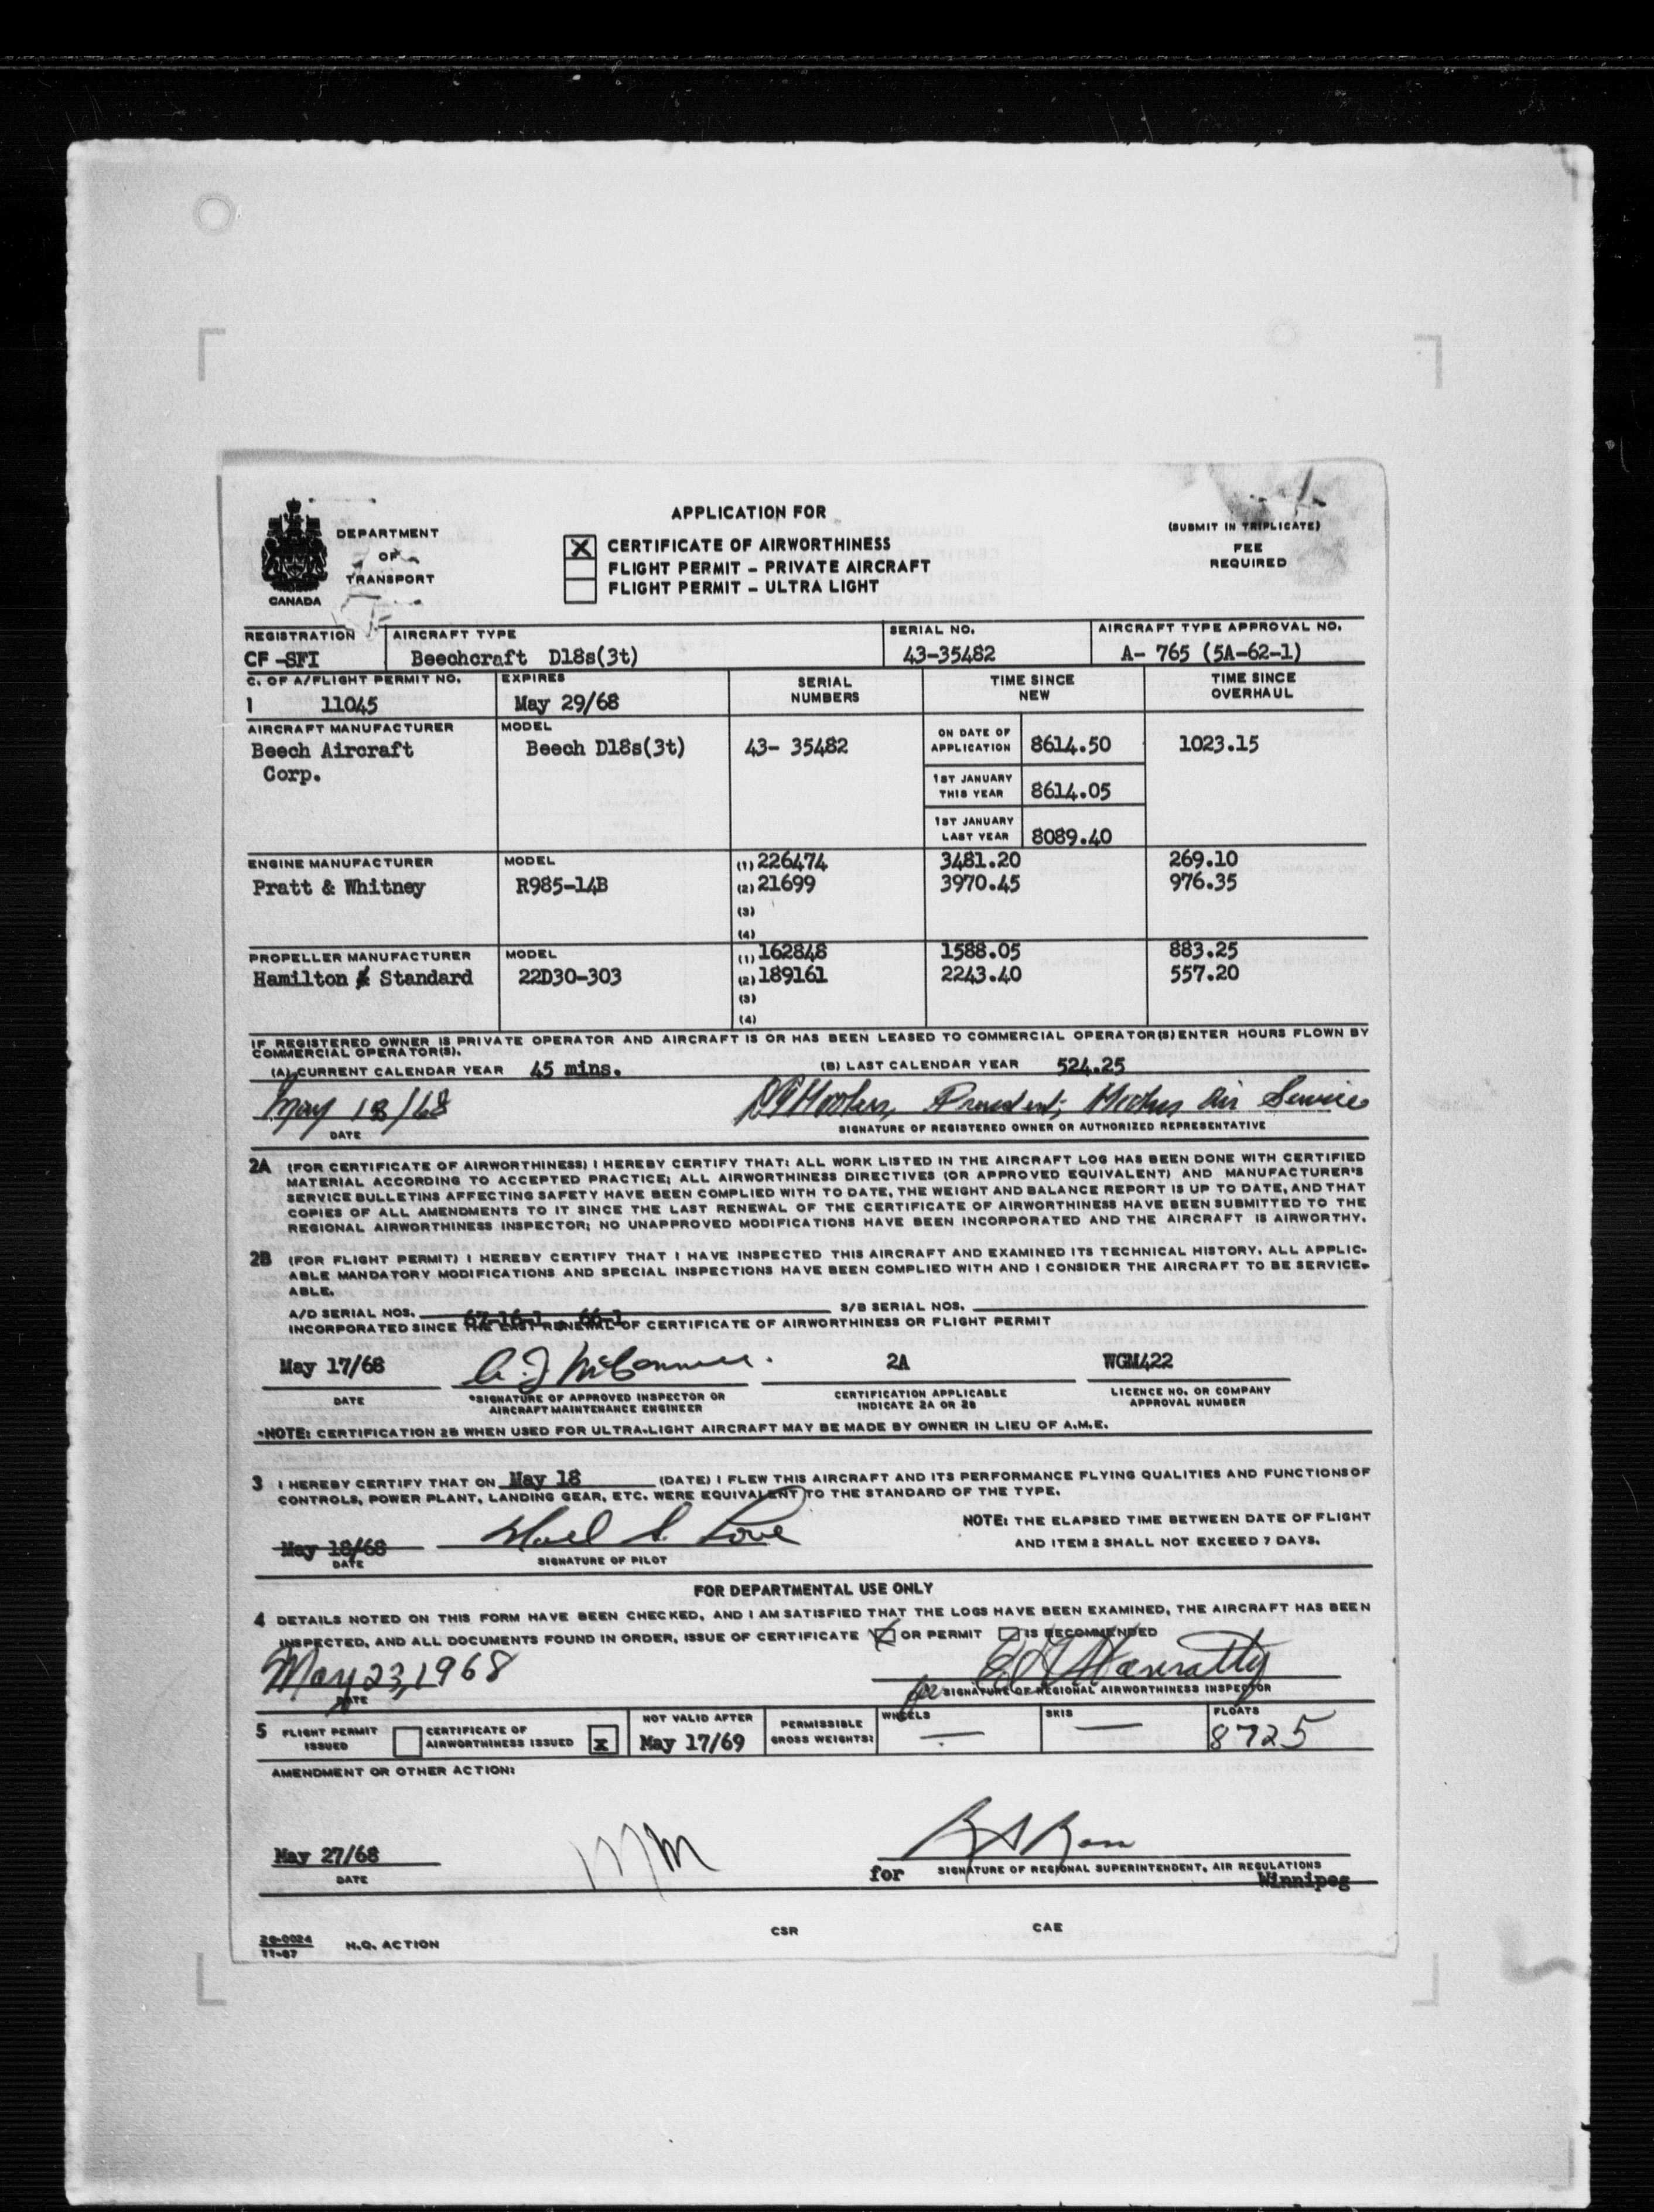 DEPARTMENT
OF
TRANSPORT
CANADA
APPLICATION FOR
X CERTIFICATE OF AIRWORTHINESS
FLIGHT PERMIT – PRIVATE AIRCRAFT
FLIGHT PERMIT – ULTRA LIGHT
(SUBMIT IN TRIPLICATE)
FEE
REQUIRED
REGISTRATION AIRCRAFT TYPE SERIAL NO. AIRCRAFT TYPE APPROVAL NO.
CF -SFI Beechcraft D18s(3t) 43-35482 A- 765 (5A-62-1)
C. OF A/FLIGHT PERMIT NO. EXPIRES SERIAL NUMBERS TIME SINCE NEW TIME SINCE OVERHAUL
1 11045 May 29/68
AIRCRAFT MANUFACTURER MODEL
Beech Aircraft Corp. Beech D18s(3t) 43- 35482 ON DATE OF APPLICATION 8614.50 1023.15
1ST JANUARY THIS YEAR 8614.05
1ST JANUARY LAST YEAR 8089.40
ENGINE MANUFACTURER MODEL (1) 226474 3481.20 269.10
Pratt & Whitney R985-14B (2) 21699 3970.45 976.35
(3)
(4)
PROPELLER MANUFACTURER MODEL (1) 162848 1588.05 883.25
Hamilton & Standard 22D30-303 (2) 189161 2243.40 557.20
(3)
(4)
IF REGISTERED OWNER IS PRIVATE OPERATOR AND AIRCRAFT IS OR HAS BEEN LEASED TO COMMERCIAL OPERATOR(S) ENTER HOURS FLOWN BY
COMMERCIAL OPERATOR(S).
(A) CURRENT CALENDAR YEAR 45 mins. (B) LAST CALENDAR YEAR 524.25
May 18/68 President, Air Service
DATE SIGNATURE OF REGISTERED OWNER OR AUTHORIZED REPRESENTATIVE
2A (FOR CERTIFICATE OF AIRWORTHINESS) I HEREBY CERTIFY THAT: ALL WORK LISTED IN THE AIRCRAFT LOG HAS BEEN DONE WITH CERTIFIED
MATERIAL ACCORDING TO ACCEPTED PRACTICE; ALL AIRWORTHINESS DIRECTIVES (OR APPROVED EQUIVALENT) AND MANUFACTURER'S
SERVICE BULLETINS AFFECTING SAFETY HAVE BEEN COMPLIED WITH TO DATE, THE WEIGHT AND BALANCE REPORT IS UP TO DATE, AND THAT
COPIES OF ALL AMENDMENTS TO IT SINCE THE LAST RENEWAL OF THE CERTIFICATE OF AIRWORTHINESS HAVE BEEN SUBMITTED TO THE
REGIONAL AIRWORTHINESS INSPECTOR; NO UNAPPROVED MODIFICATIONS HAVE BEEN INCORPORATED AND THE AIRCRAFT IS AIRWORTHY.
2B (FOR FLIGHT PERMIT) I HEREBY CERTIFY THAT I HAVE INSPECTED THIS AIRCRAFT AND EXAMINED ITS TECHNICAL HISTORY. ALL APPLIC-
ABLE MANDATORY MODIFICATIONS AND SPECIAL INSPECTIONS HAVE BEEN COMPLIED WITH AND I CONSIDER THE AIRCRAFT TO BE SERVICE-
ABLE.
A/D SERIAL NOS. 67-16-1 , 66-1 S/B SERIAL NOS.
INCORPORATED SINCE THE LAST RENEWAL OF CERTIFICATE OF AIRWORTHINESS OR FLIGHT PERMIT
May 17/68 2A WGM422
DATE *SIGNATURE OF APPROVED INSPECTOR OR AIRCRAFT MAINTENANCE ENGINEER CERTIFICATION APPLICABLE INDICATE 2A OR 2B LICENCE NO. OR COMPANY APPROVAL NUMBER
*NOTE: CERTIFICATION 2B WHEN USED FOR ULTRA-LIGHT AIRCRAFT MAY BE MADE BY OWNER IN LIEU OF A.M.E.
3 I HEREBY CERTIFY THAT ON May 18 (DATE) I FLEW THIS AIRCRAFT AND ITS PERFORMANCE FLYING QUALITIES AND FUNCTIONS OF
CONTROLS, POWER PLANT, LANDING GEAR, ETC. WERE EQUIVALENT TO THE STANDARD OF THE TYPE.
NOTE: THE ELAPSED TIME BETWEEN DATE OF FLIGHT
AND ITEM 2 SHALL NOT EXCEED 7 DAYS.
May 18/68 Love
DATE SIGNATURE OF PILOT
FOR DEPARTMENTAL USE ONLY
4 DETAILS NOTED ON THIS FORM HAVE BEEN CHECKED, AND I AM SATISFIED THAT THE LOGS HAVE BEEN EXAMINED, THE AIRCRAFT HAS BEEN
INSPECTED, AND ALL DOCUMENTS FOUND IN ORDER, ISSUE OF CERTIFICATE OR PERMIT IS RECOMMENDED
May 23, 1968 Hanratty
DATE SIGNATURE OF REGIONAL AIRWORTHINESS INSPECTOR
5 FLIGHT PERMIT ISSUED CERTIFICATE OF AIRWORTHINESS ISSUED x NOT VALID AFTER May 17/69 PERMISSIBLE GROSS WEIGHTS: WHEELS — SKIS — FLOATS 8725
AMENDMENT OR OTHER ACTION:
May 27/68
DATE for SIGNATURE OF REGIONAL SUPERINTENDENT, AIR REGULATIONS
Winnipeg
26-0024
11-67
H.Q. ACTION CSR CAE